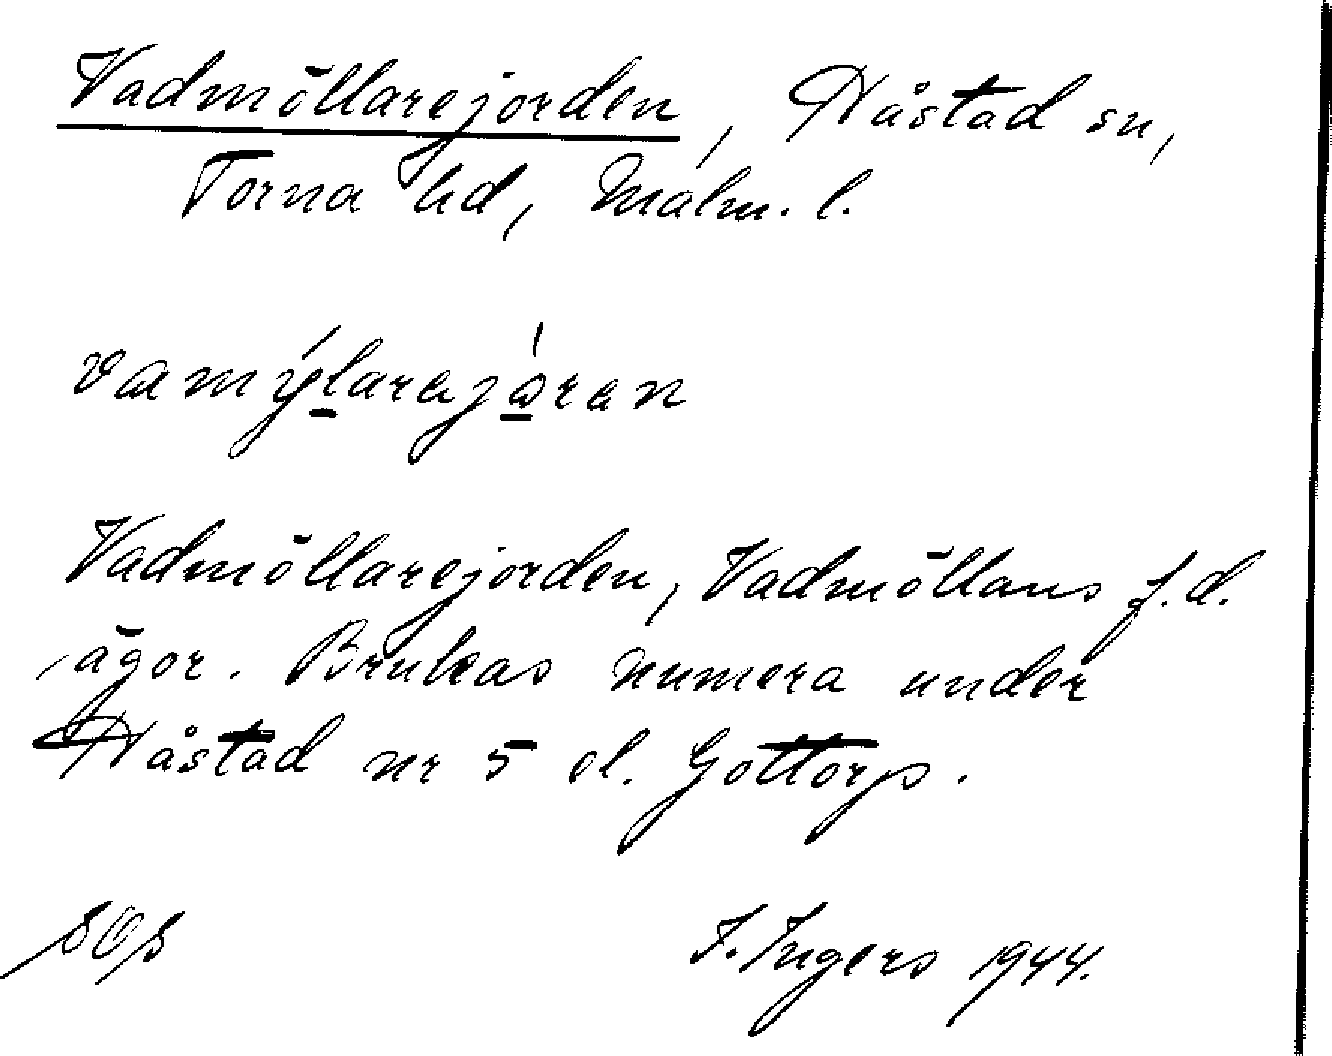 Vadmöllarejorden, Håstad sn,
Torna hd, Malm. l.
vamýlarajåran
Vadmöllarejorden, Vadmöllans f.d.
ägor. Brukas numera under
Håstad nr 5 el. Gottorp.
I. Ingers 1944.